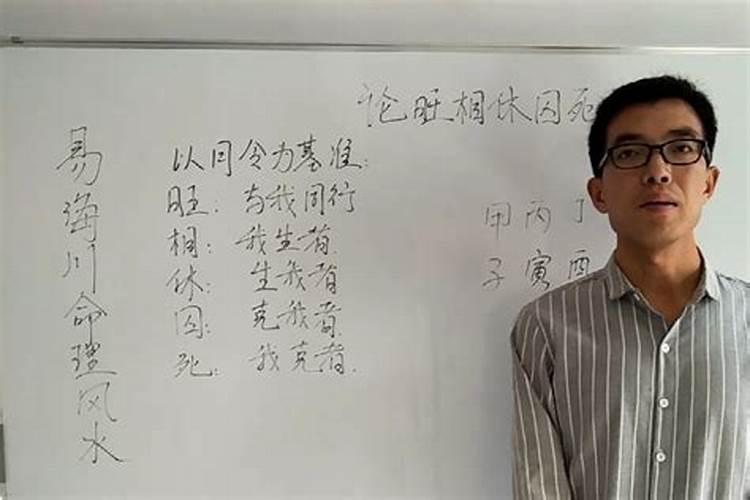 论旺相休囚死
易海川命理风水
以月令为基准:
旺: 与我同行
相: 我生者.
休: 生我者
囚: 克我者.
死: 我克者.
甲丙丁
子寅酉